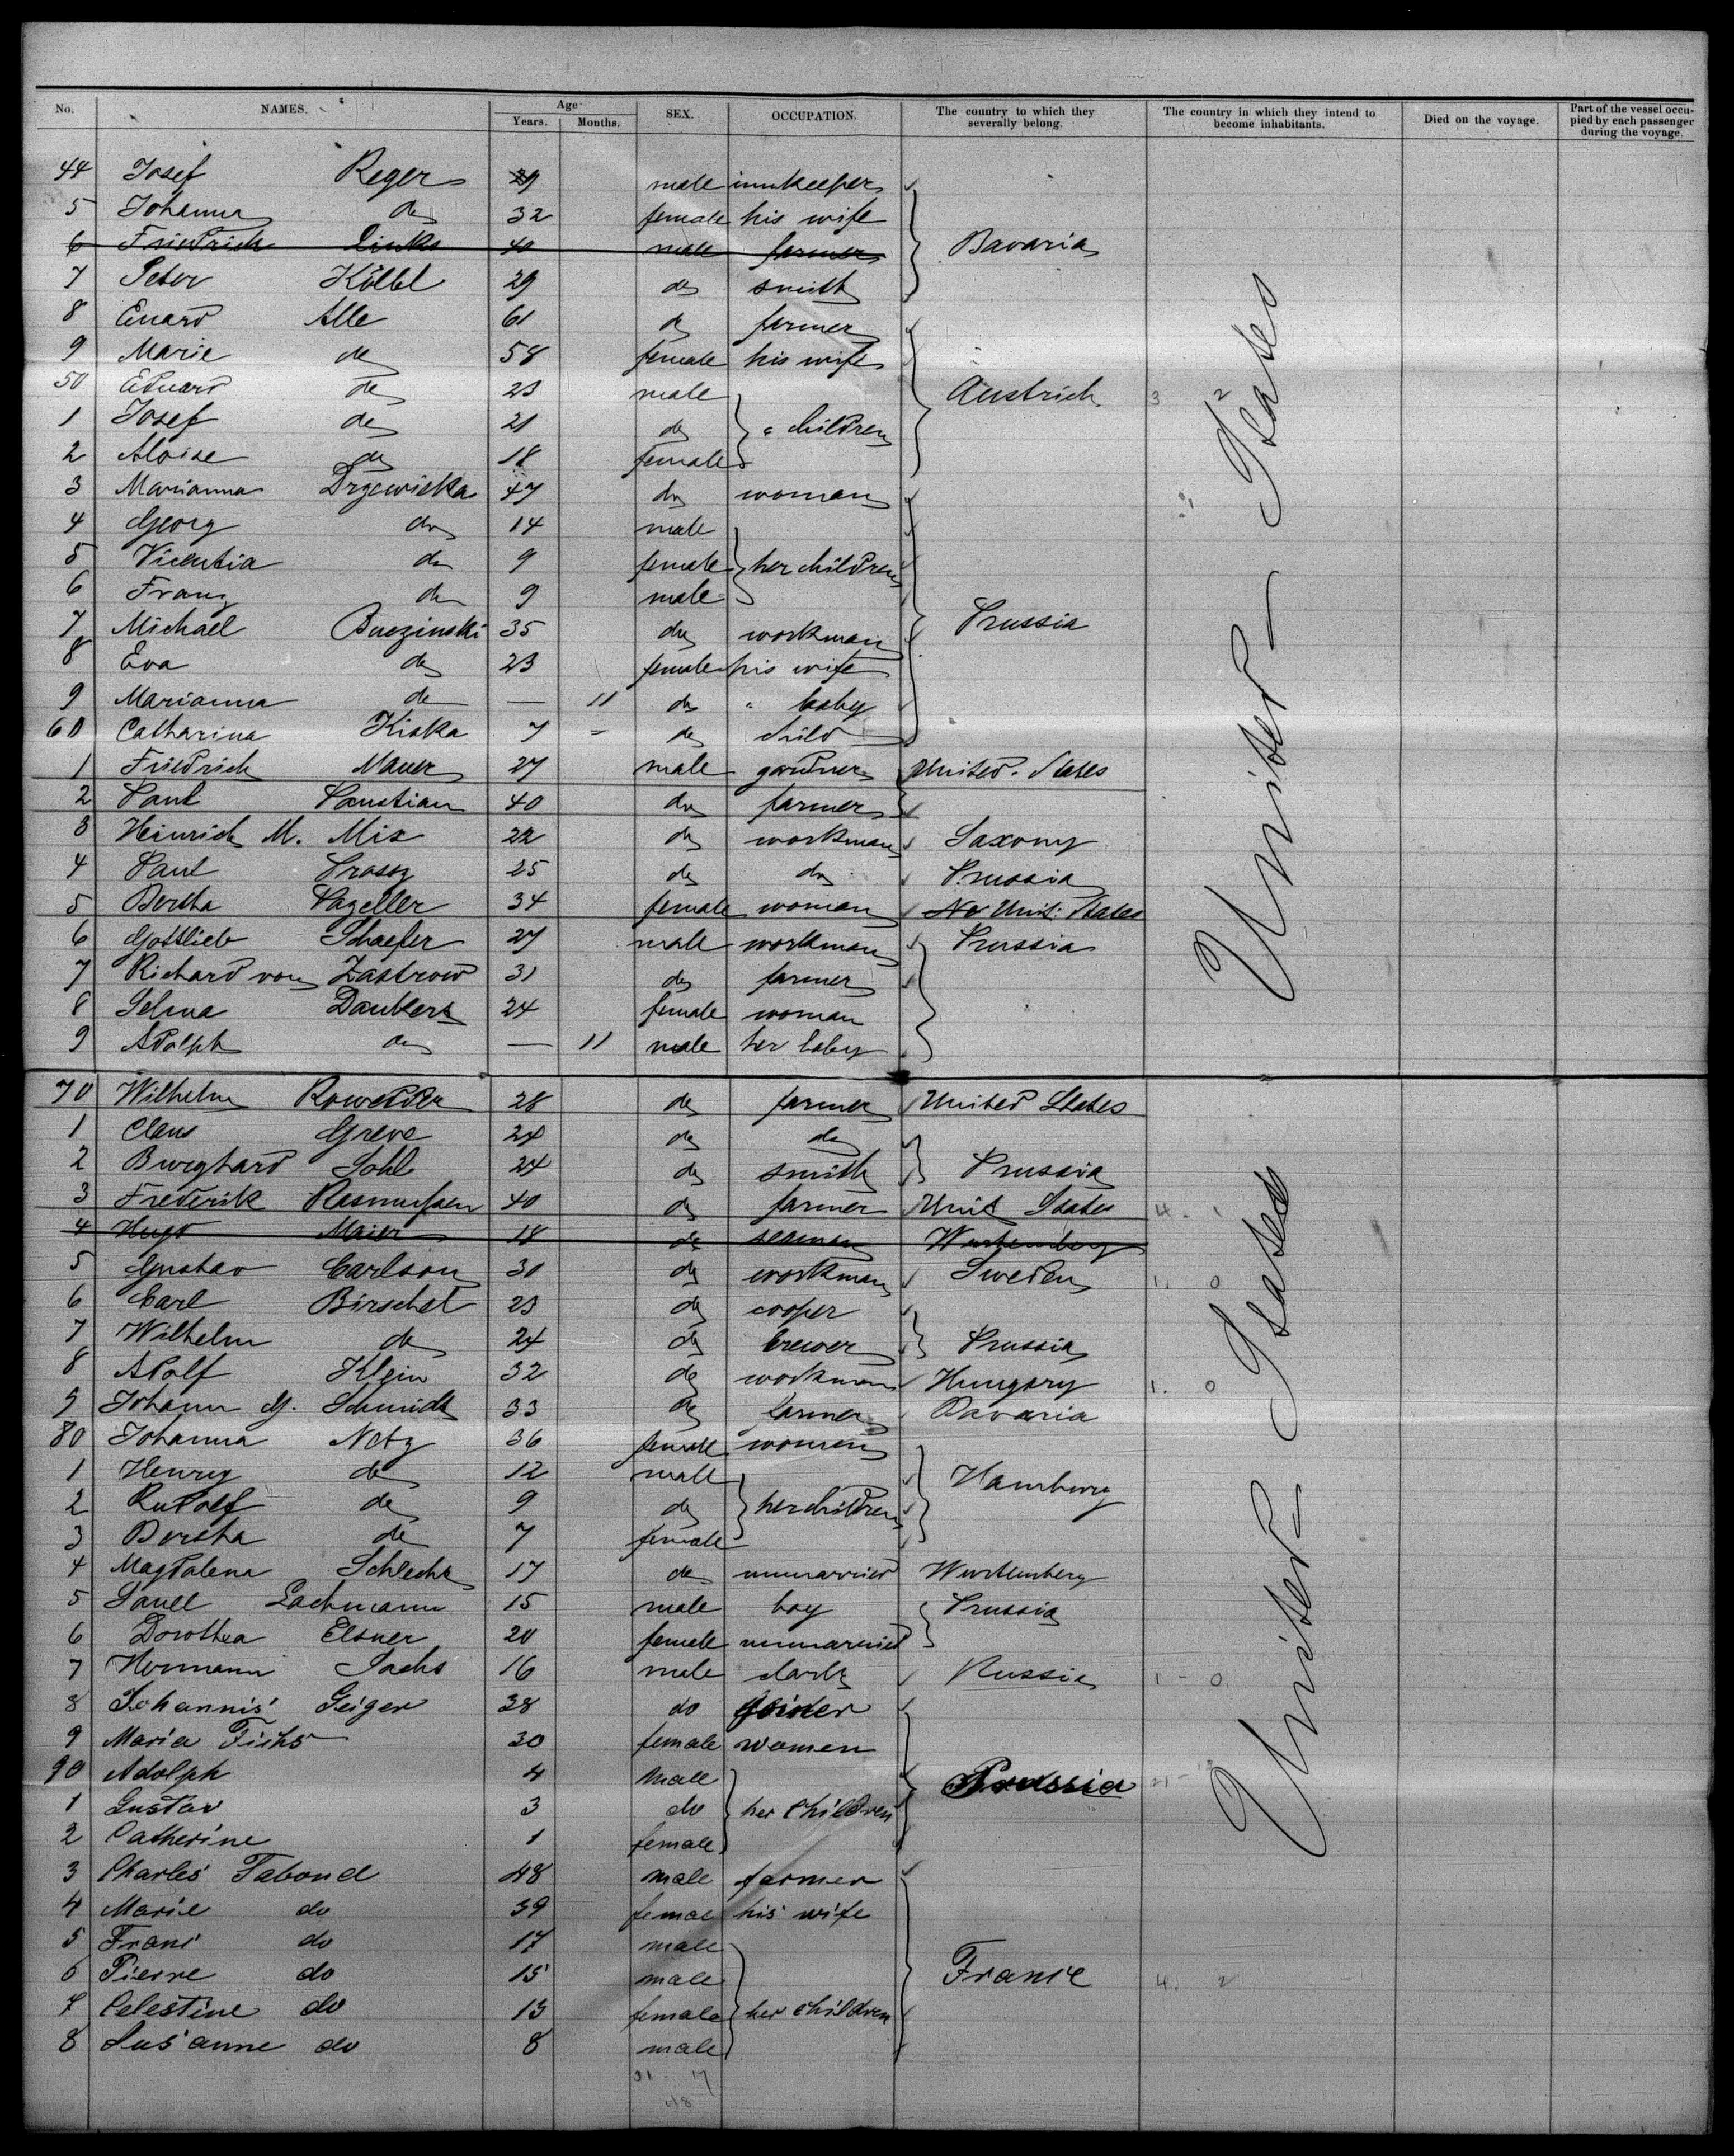 No. NAMES. Age Years. Months. SEX. OCCUPATION. The country to which they severally belong. The country in which they intend to become inhabitants. Died on the voyage. Part of the vessel occupied by each passenger during the voyage.
44 Josef Reger 29 male innkeeper
5 Johanna do 32 female his wife
6 Friedrich Links 40 male farmer Bavaria
7 Peter Kölbl 29 do smith
8 Enard Alle 61 do farmer
9 Marie do 58 female his wife
50 Eduard do 23 male Austrich 3 2
1 Josef do 21 do " children
2 Aloise do 18 female
3 Marianna Drzewicka 47 do woman
4 Georg do 14 male
5 Vicentia do 9 female her children
6 Franz do 9 male
7 Michael Buczinski 35 do workman Prussia
8 Eva do 23 female his wife
9 Marianna do — 11 do " baby
60 Catharina Kiska 7 - do child
1 Friedrich Mauer 27 male gardner United States
2 Paul Paustian 40 do farmer
3 Heinrich M. Mix 22 do workman Saxony
4 Paul 25 do do Prussia
5 Bertha Pageller 34 female woman No Unit: States
6 Gottlieb Schaefer 27 male workman Prussia
7 Richard von Zastrow 31 do farmer
8 Selma Dankers 24 female woman
9 Adolph do — 11 male her baby
United States
70 Wilhelm Rowedder 28 do farmer United States
1 Claus Greve 24 do do
2 Burghard Sohl 24 do smith Prussia
3 Frederik Rasmussen 40 do farmer Unit States 4.
4 Hugo Maier 18 do seaman Wurtemberg
5 Gustav Carlson 30 do workman Sweden 1. 0
6 Carl Birschel 23 do cooper
7 Wilhelm do 24 do brewer Prussia
8 Adolf Klein 32 do workman Hungary 1. 0
9 Johann G. Schmidt 33 do farmer Bavaria
80 Johanna Netz 36 female women
1 Henry do 12 male Hamburg
2 Rudolf do 9 do her children
3 Bertha do 7 female
4 Magdalena Schlecht 17 do unmarried Wurtemberg
5 Lachmann 15 male boy Prussia
6 Dorothea Elsner 20 female unmarried
7 Hermann Sachs 16 male clark Russia 1 - 0
8 Johannis Geiger 38 do joiner
9 Maria Fichs 30 female women
90 Adolph 4 male Prussia 21 -
1 Gustav 3 do her children
2 Catherine 1 female
3 Charles Tabond 48 male farmer
4 Marie do 39 femal his wife
5 Frans do 17 male
6 Pierre do 15 male France 4. 2
7 Celestine do 13 female her children
8 Susanne do 8 male
United States
31 17
48